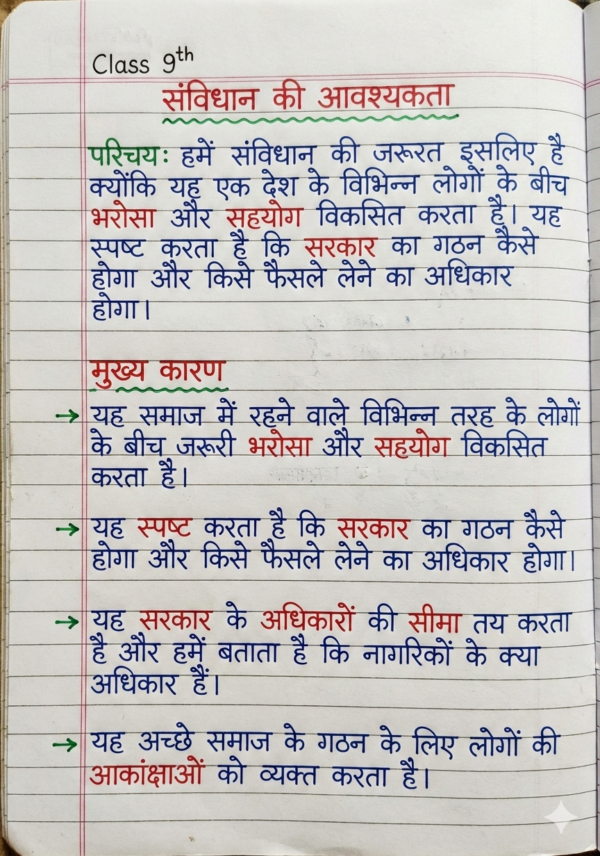 Class 9th
संविधान की आवश्यकता
परिचय: हमें संविधान की जरूरत इसलिए है
क्योंकि यह एक देश के विभिन्न लोगों के बीच
भरोसा और सहयोग विकसित करता है। यह
स्पष्ट करता है कि सरकार का गठन कैसे
होगा और किसे फैसले लेने का अधिकार
होगा।
मुख्य कारण
→ यह समाज में रहने वाले विभिन्न तरह के लोगों
के बीच जरूरी भरोसा और सहयोग विकसित
करता है।
→ यह स्पष्ट करता है कि सरकार का गठन कैसे
होगा और किसे फैसले लेने का अधिकार होगा।
→ यह सरकार के अधिकारों की सीमा तय करता
है और हमें बताता है कि नागरिकों के क्या
अधिकार हैं।
→ यह अच्छे समाज के गठन के लिए लोगों की
आकांक्षाओं को व्यक्त करता है।